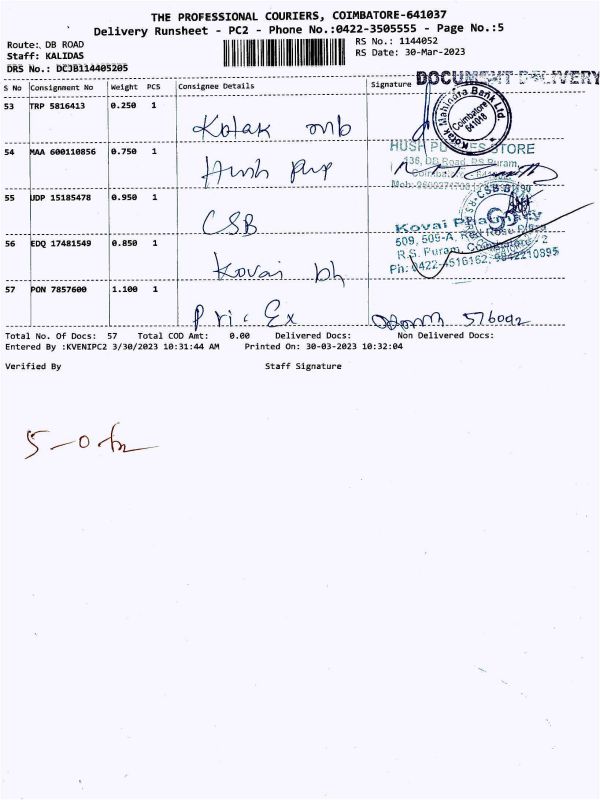 THE PROFESSIONAL COURIERS, COIMBATORE-641037
Delivery Runsheet - PC2 - Phone No.:0422-3505555 - Page No.:5
Route: DB ROAD
RS No.: 1144052
Staff: KALIDAS
RS Date: 30-Mar-2023
DRS No.: DCJB114405205
DOCUMENT DELIVERY
S No Consignment No Weight PCS Consignee Details Signature
53 TRP 5816413 0.250 1
Kotak mb
Kotak Mahindra Bank Ltd.
Coimbatore
641018
54 MAA 600110856 0.750 1
Hush pup
HUSH PUPPIES STORE
136, DB Road, RS Puram,
55 UDP 15185478 0.950 1
CSB
56 EDQ 17481549 0.850 1
Kovai ph
Kovai Pharmacy
509, 509-A,
R.S. Puram, Coimbatore - 2
Ph: 0422-4516162,
57 PON 7857600 1.100 1
Pric Ex
576092
Total No. Of Docs: 57 Total COD Amt: 0.00 Delivered Docs: Non Delivered Docs:
Entered By :KVENIPC2 3/30/2023 10:31:44 AM Printed On: 30-03-2023 10:32:04
Verified By Staff Signature